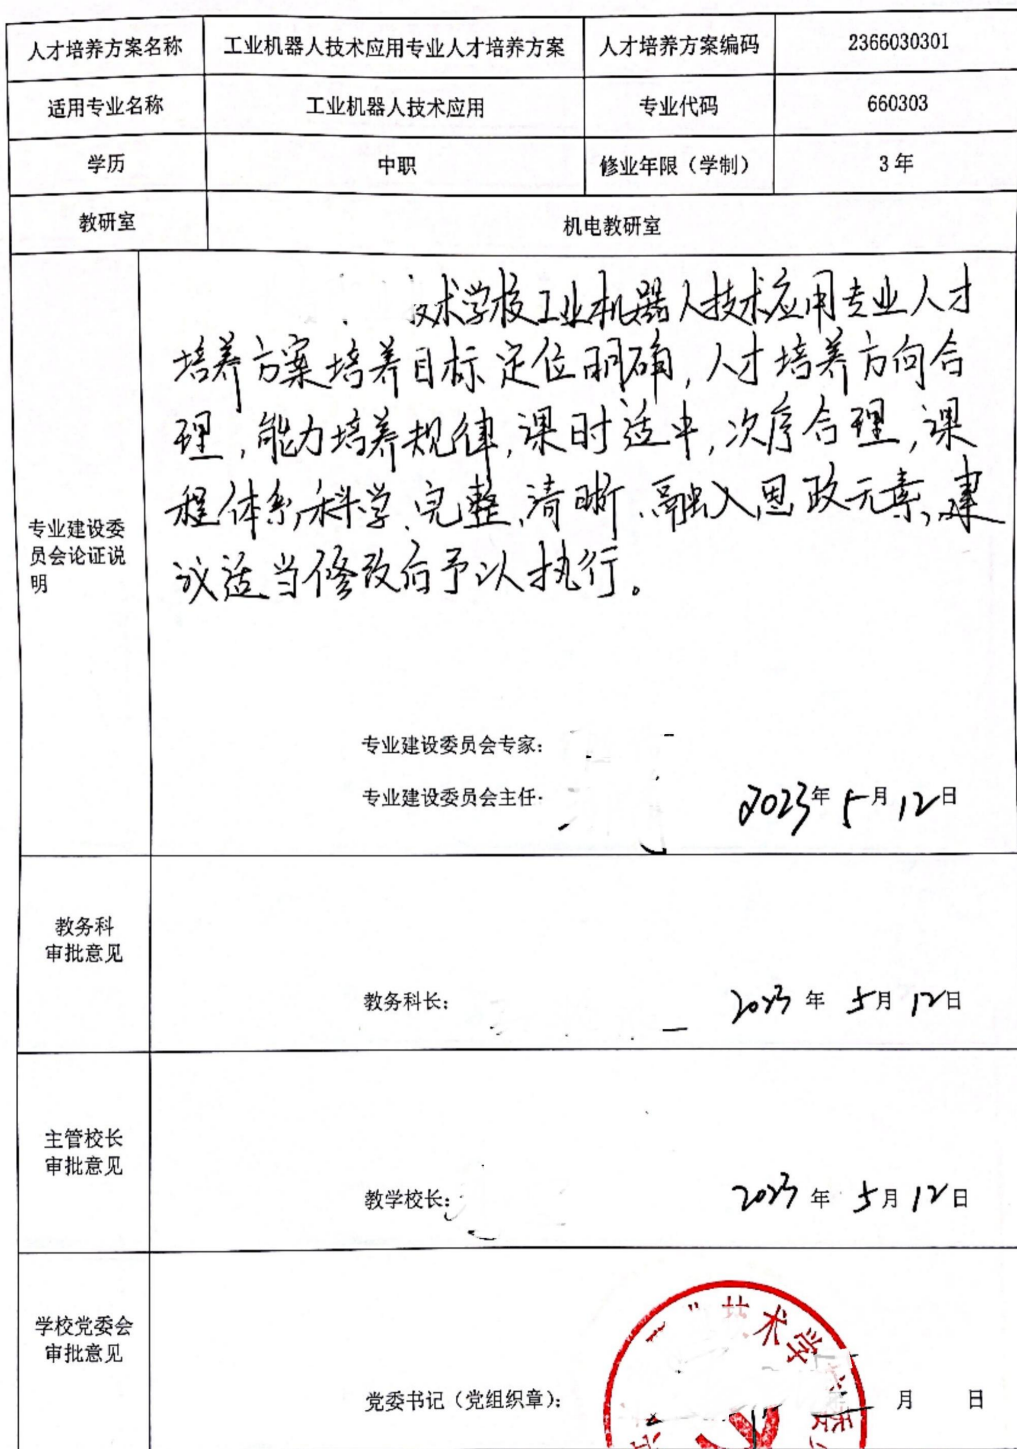 人才培养方案名称 工业机器人技术应用专业人才培养方案 人才培养方案编码 2366030301
适用专业名称 工业机器人技术应用 专业代码 660303
学历 中职 修业年限（学制） 3年
教研室 机电教研室
专业建设委
员会论证说
明
术学校工业机器人技术应用专业人才
培养方案培养目标定位明确,人才培养方向合
理,能力培养规律,课时适中,次序合理,课
程体系科学、完整、清晰、融入思政元素,建
议适当修改后予以执行。
专业建设委员会专家:
专业建设委员会主任: 2023年5月12日
教务科
审批意见
教务科长: 2023年5月12日
主管校长
审批意见
教学校长: 2023年5月12日
学校党委会
审批意见
术学
党委书记（党组织章）: 月 日